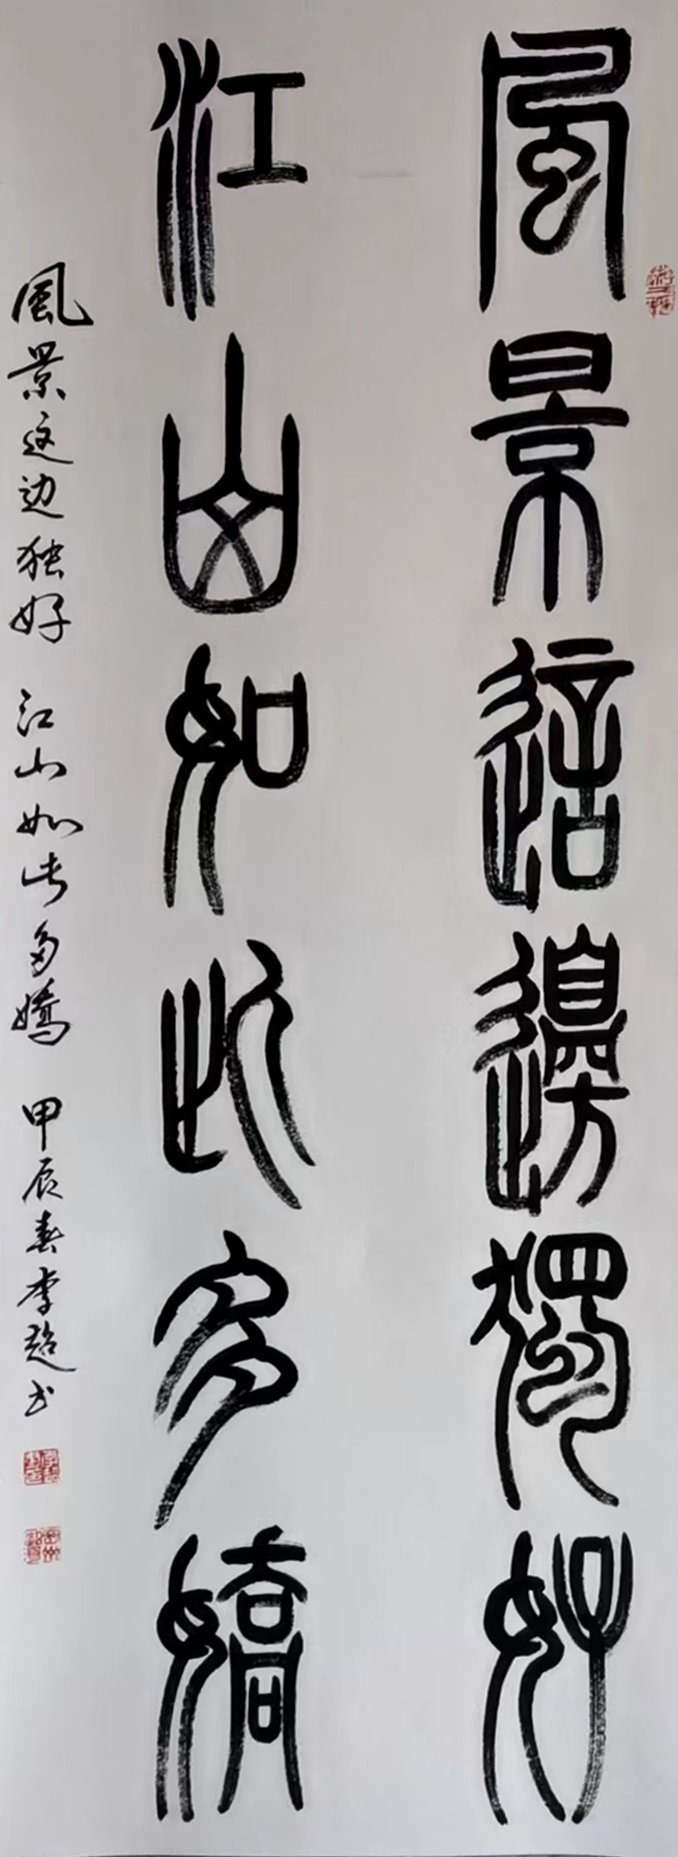 風景這邊獨好
江山如此多嬌
風景这边独好 江山如此多嬌 甲辰春李超书